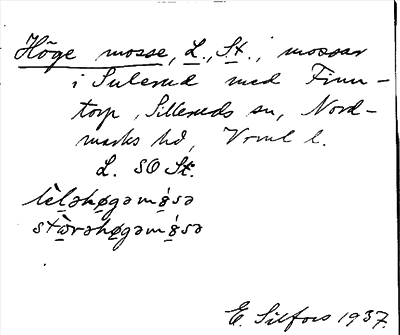 Höge mosse, L., St., mossar
i Sulerud med Finn-
torp, Silleruds sn, Nord-
marks hd, Vrml l.
L. SO St.
lèl̥əhø̥gəmỳsə
stæ̀rəhø̥gəmỳsə
E. Silfors 1937.